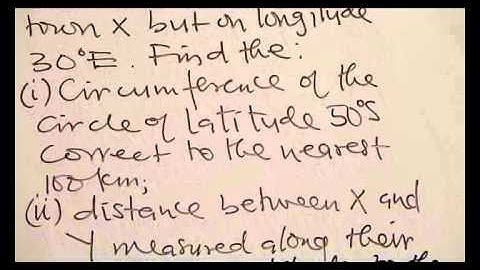 town X but on longitude
30°E. Find the:
(i) Circumference of the
Circle of latitude 50°S
Correct to the nearest
100km;
(ii) distance between X and
Y measured along their